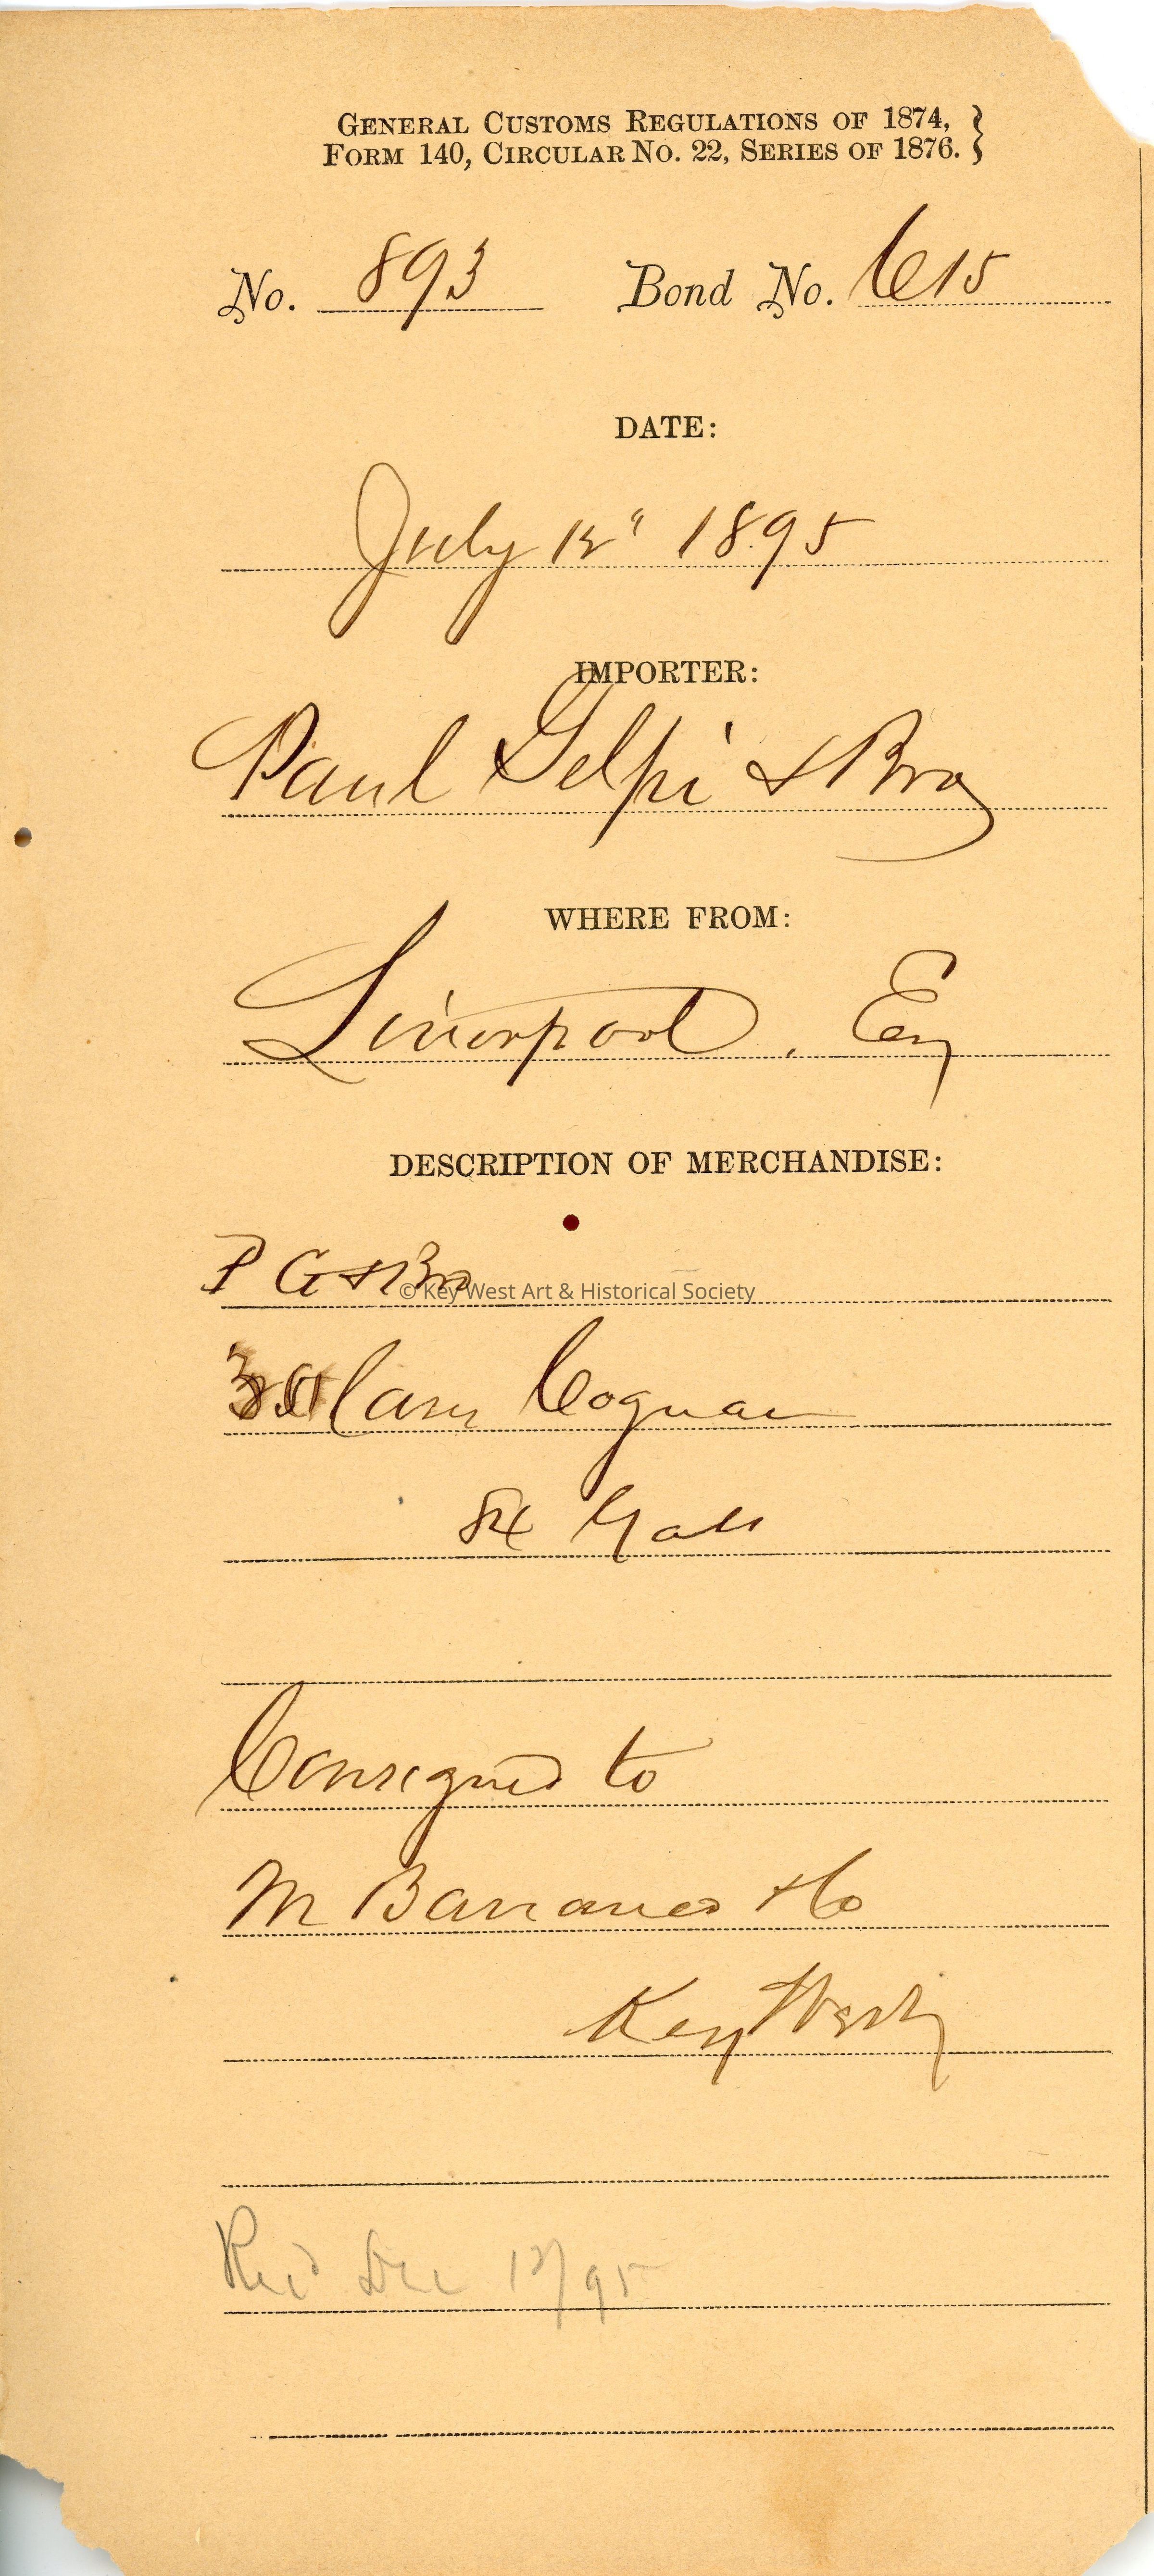 GENERAL CUSTOMS REGULATIONS OF 1874,
FORM 140, CIRCULAR NO. 22, SERIES OF 1876.
No. 893 Bond No. 615
DATE:
July 12" 1895
IMPORTER:
Paul Gelpi & Bro
WHERE FROM:
Liverpool, Eng
DESCRIPTION OF MERCHANDISE:
P G & Bro
© Key West Art & Historical Society
Cases Cognac
Galls
Consigned to
M Barranco & Co
Key West
Rec'd Dec 12/95